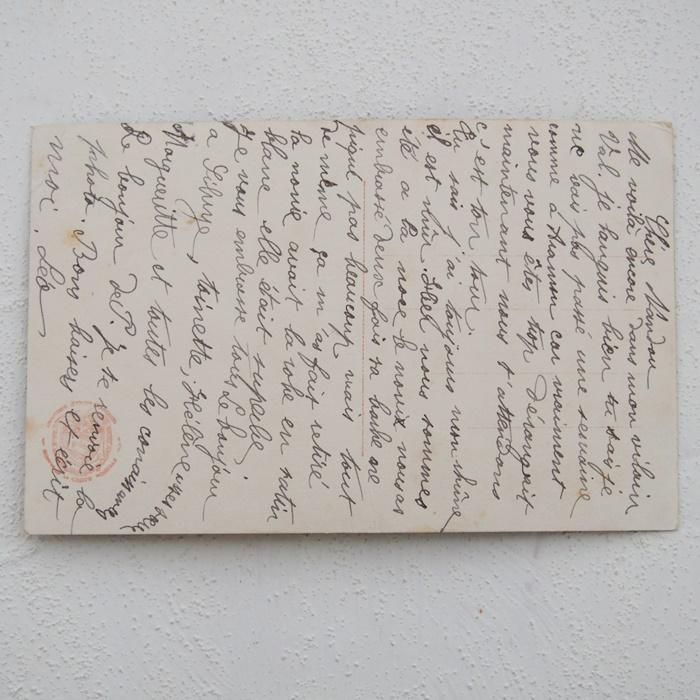 Chère Nandou
Me voilà encore dans mon vilain
Val. Je languis bien tu sais je
ne suis pas passé une semaine
comme à Aramon car vraiment
vous vous êtes trop dérangeit
maintenant nous t'attendons
c'est ton tour.
Tu sais j'ai toujours mon
il est noir. nous sommes
été a la noce le nous as
embrassé deux fois sa barbe ne
pique pas beaucoup mais tout
de même ça m'as fait retiré
la novie avait la robe en satin
blanc elle était superbe
Je vous embrasse tous Le bonjour
a Toinette, Hélène
Marguerite et toutes les
Le bonjour de P. je te renvoie la
photo. Bons baisers et écrit
moi. Léo